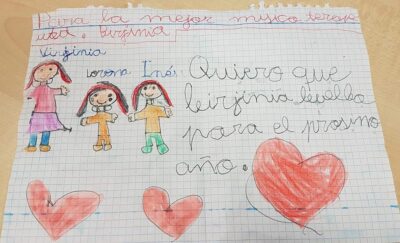 Para la mejor musco terap
uta. Birginia
Virginia
Lorena Inés
Quiero que
birjinia buelba
para el prosimo
año.